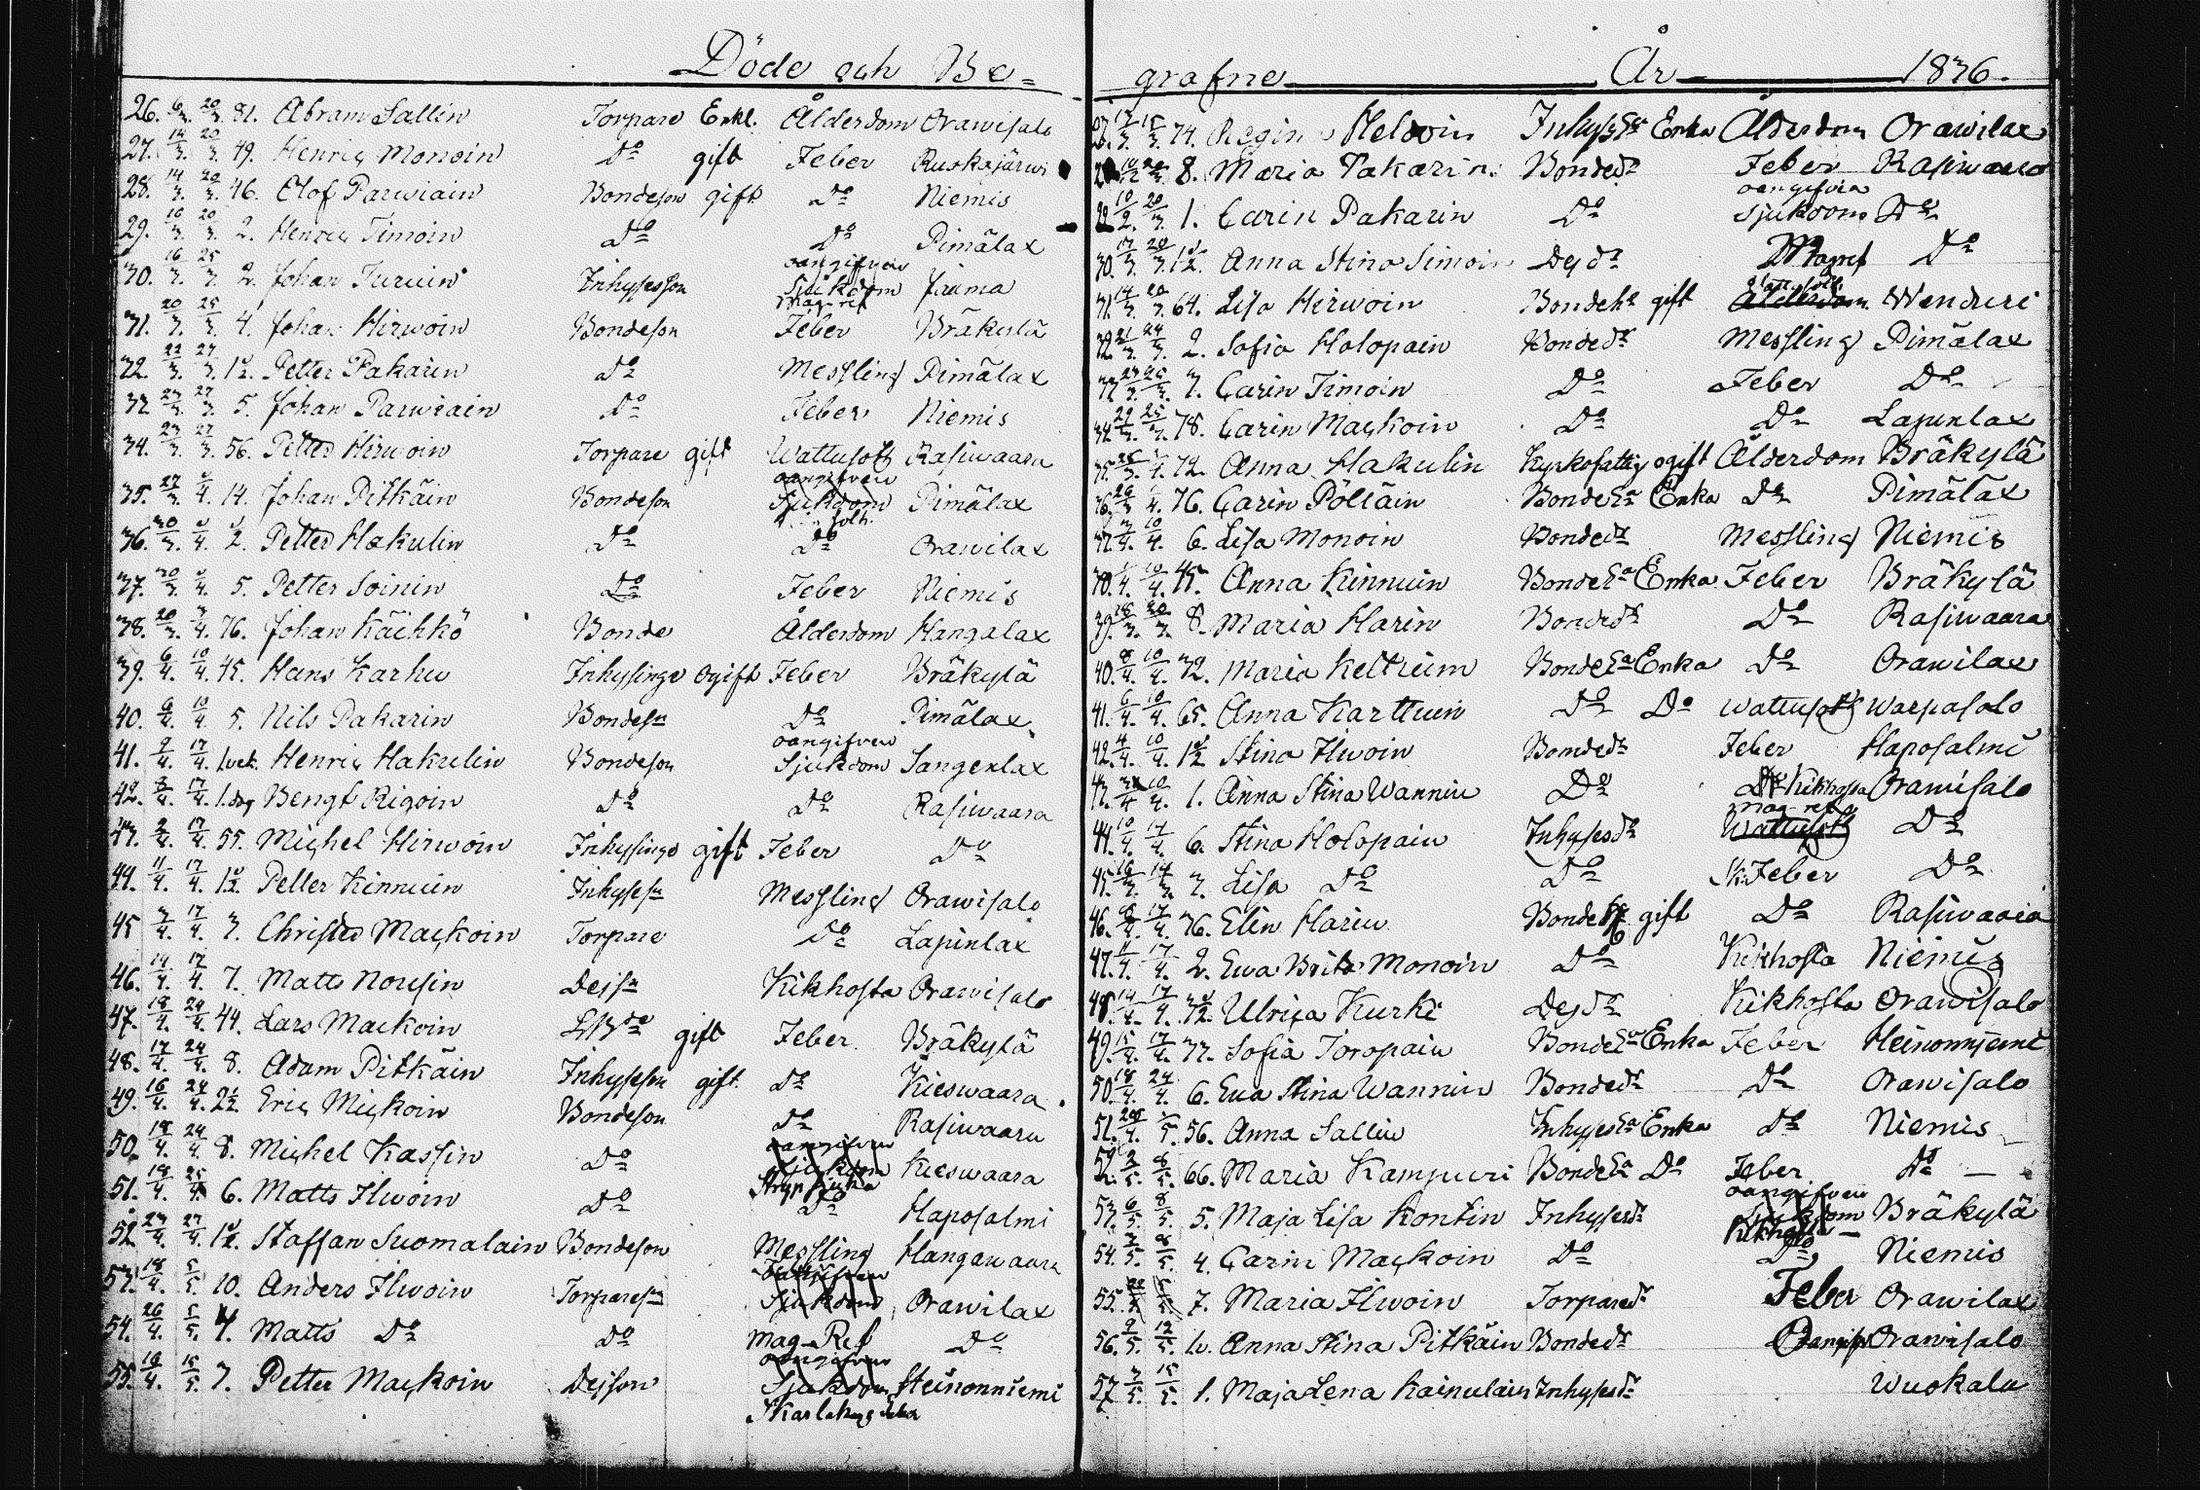 Döde och Be=
26. 6/3. 20/3. 81. Abram Sallin Torpare Enkl. Ålderdom Orawisalo
27. 14/3. 20/3. 49. Henric Monoin Do gift Feber Ruokojärwi
28. 14/3. 20/3. 46. Olof Parwiain Bondeson gift Do Niemis
29. 16/3. 20/3. 2. Henric Timoin Do Do Pimälax
30. 16/3. 25/3. 2. Johan Turuin Inhysesson oangifven Sjukdom mag-ref Jaama
31. 20/3. 25/3. 4. Johan Hirwoin Bondeson Feber Bräkylä
32. 22/3. 27/3. 1/2. Petter Pakarin Do Messling Pimälax
33. 23/3. 27/3. 5. Johan Parwiain Do Feber Niemis
34. 23/3. 27/3. 56. Petter Hirwoin Torpare gift Wattusot Rasiwaara
35. 27/3. /4. 14. Johan Pitkäin Bondeson oangifven Sjukdom Pimälax
36. 30/3. /4. 2. Petter Hakulin Do Do Orawilax
37. 30/3. /4. 5. Petter Soinin Do Feber Niemis
38. 20/3. 3/4. 76. Johan Kächkö Bonde Ålderdom Hangalax
39. 6/4. 10/4. 45. Hans Karhu Inhysinge ogift Feber Bräkylä
40. 6/4. 10/4. 5. Nils Pakarin Bondesn Do Pimälax
41. 9/4. 17/4. 1.vek. Henric Hakulin Bondeson oangifven Sjukdom Sangenlax
42. 3/4. 17/4. 1.dag Bengt Rigoin Do Do Rasiwaara
43. 9/4. 17/4. 55. Michel Hirwoin Inhysinge gift Feber Do
44. 11/4. 17/4. 1/2. Petter Kinnuin Inhysesn Messling Orawisalo
45 3/4. 17/4. 3. Christer Mackoin Torpare Do Lapinlax
46. 14/4. 17/4. 7. Matts Nousin Dejsn Kikhosta Orawisalo
47. 18/4. 24/4. 44. Lars Mackoin gift Feber Bräkylä
48. 17/4. 24/4. 8. Adam Pitkäin Inhyseson gift Do Kieswaara
49. 16/4. 24/4. 2 1/2 Eric Mickoin Bondeson Do Rasiwaara
50. 18/4. 24/4. 8. Michel Kassin Do oangifven Sjukdom Strypsjuka Kieswaara
51. 18/4. 25/4. 6. Matts Ihwoin Do Do Haposalmi
52. 23/4. 27/4. 1/2. Staffan Suomalain Bondeson Messling Hangawaara
53. 18/4. 5/5. 10. Anders Ihwoin Torparesn oangifven Sjukdom Orawilax
54. 26/4. 5/5. 4. Matts Do Do Mag-Ref Do
55. 16/4. 15/5. 7. Petter Mackoin Dejson oangifven Sjukdom Skarlakans feber Heinonniemi
grafne År 1836.
17/3. 15/3. 74. Regina Heldoin Inhyses Enka Ålderdom Orawilax
8. Maria Pakarin Bondedr Feber Rasiwaara
10/2. 20/3. 1. Carin Pakarin Do oangifven Sjukdom Do
30. 17/3. 20/3. 1/2. Anna Stina Simoin Dejdr Magref Do
31. 14/3. 20/3. 64. Lisa Hirwoin Bondeh gift Ålderdom Wenduri
32. 21/3. 24/3. 2. Sofia Holopain Bondedr Messling Pimälax
33 23/3. 25/3. 3. Carin Timoin Do Feber Do
34 22/3. 25/3. 78. Carin Mackoin Do Do Lapinlax
35. /3. /4. 72. Anna Hakulin Kyrkofattig ogift Ålderdom Bräkylä
36. 26/3 /4. 76. Carin Pöltäin Bonde Enka Do Pimälax
37. 3/4. 10/4. 6. Lisa Monoin Bondedr Messling Niemis
38. /4. 10/4. 45. Anna Kinnuin Bonde Enka Feber Bräkylä
39. 18/3. 20/3. 8. Maria Harin Bondedr Do Rasiwaara
40. 8/4. 10/4. 32. Maria Keltuin Bonde Enka Do Orawilax
41. 6/4. 10/4. 65. Anna Karttuin Do Do Wattusot Warpasalo
42. 4/4. 10/4. 1/2 Stina Ihwoin Bondedr Feber Haposalmi
43. /4 10/4. 1. Anna Stina Wannin Do Kikhosta Orawisalo
44. 10/4. 17/4. 6. Stina Holopain Inhysesdr mag-ref Wattusot Do
45. 16/3. 19/3. 3. Lisa Do Do Feber Do
46. 8/4. 17/4. 36. Elin Harin Bonde gift Do Rasiwaara
47. 11/4. 17/4. 2. Ewa Brita Monoin Do Kikhosta Niemis
48. 14/4. 17/4. Ulrica Kurki Dejdr Kikhosta Orawisalo
49. 15/4. 17/4. 77. Sofia Toropain Bonde Enka Feber Heinonniemi
50. 18/4. 24/4. 6. Ewa Stina Wannin Bondedr Do Orawisalo
51. 28/4. /5. 56. Anna Sallin Inhyses Enka Do Niemis
52. 2/5. 8/5. 66. Maria Kampuri Bonde Do Feber Do
53. 6/5. 8/5. 5. Maja Lisa Kontin Inhysesdr oangifven Sjukdom Kikhosta Bräkylä
54. 3/5. 8/5. 4. Carin Mackoin Do Do Niemis
55. 7. Maria Ihwoin Torparedr Feber Orawilax
56. 9/5. 12/5. Anna Stina Pitkäin Bondedr Oangifv Orawisalo
57. 3/5. 15/5. 1. Maja Lena Kainulain Inhysesdr Wuokala